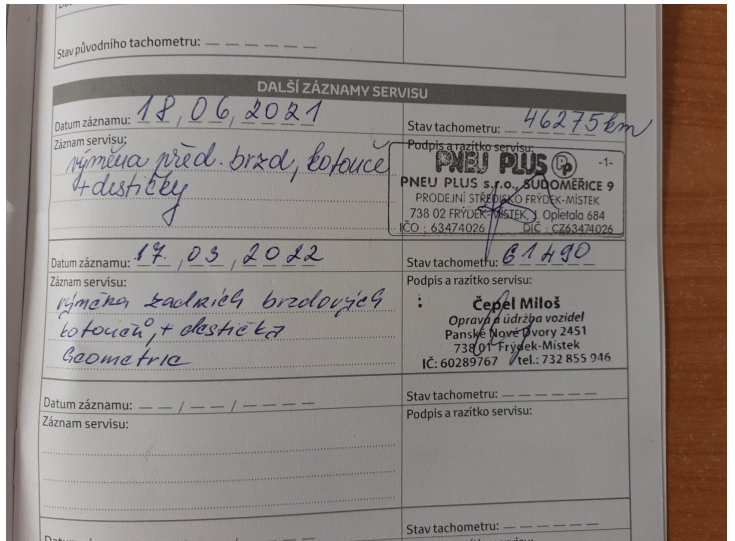 Stav původního tachometru: _ _ _ _ _ _
DALŠÍ ZÁZNAMY SERVISU
Datum záznamu: 18,06,2021
Stav tachometru: 46275km
Záznam servisu:
výměna před. brzd, kotouče
+destičky
Podpis a razítko servisu:
PNEU PLUS PP -1-
PNEU PLUS s.r.o., SUDOMĚŘICE 9
PRODEJNÍ STŘEDISKO FRÝDEK-MÍSTEK
738 02 FRÝDEK-MÍSTEK, J. Opletala 684
IČO : 63474026 DIČ : CZ63474026
Datum záznamu: 17.,03,2022
Stav tachometru: 61490
Záznam servisu:
výměna zadních brzdových
kotoučů, + destička
Geometrie
Podpis a razítko servisu:
Čepel Miloš
Oprava a údržba vozidel
Panské Nové Dvory 2451
738 01 Frýdek-Místek
IČ: 60289767 tel.: 732 855 946
Datum záznamu: _ _ / _ _ / _ _ _ _
Stav tachometru: _ _ _ _ _ _
Záznam servisu:
Podpis a razítko servisu:
Stav tachometru: _ _ _ _ _ _